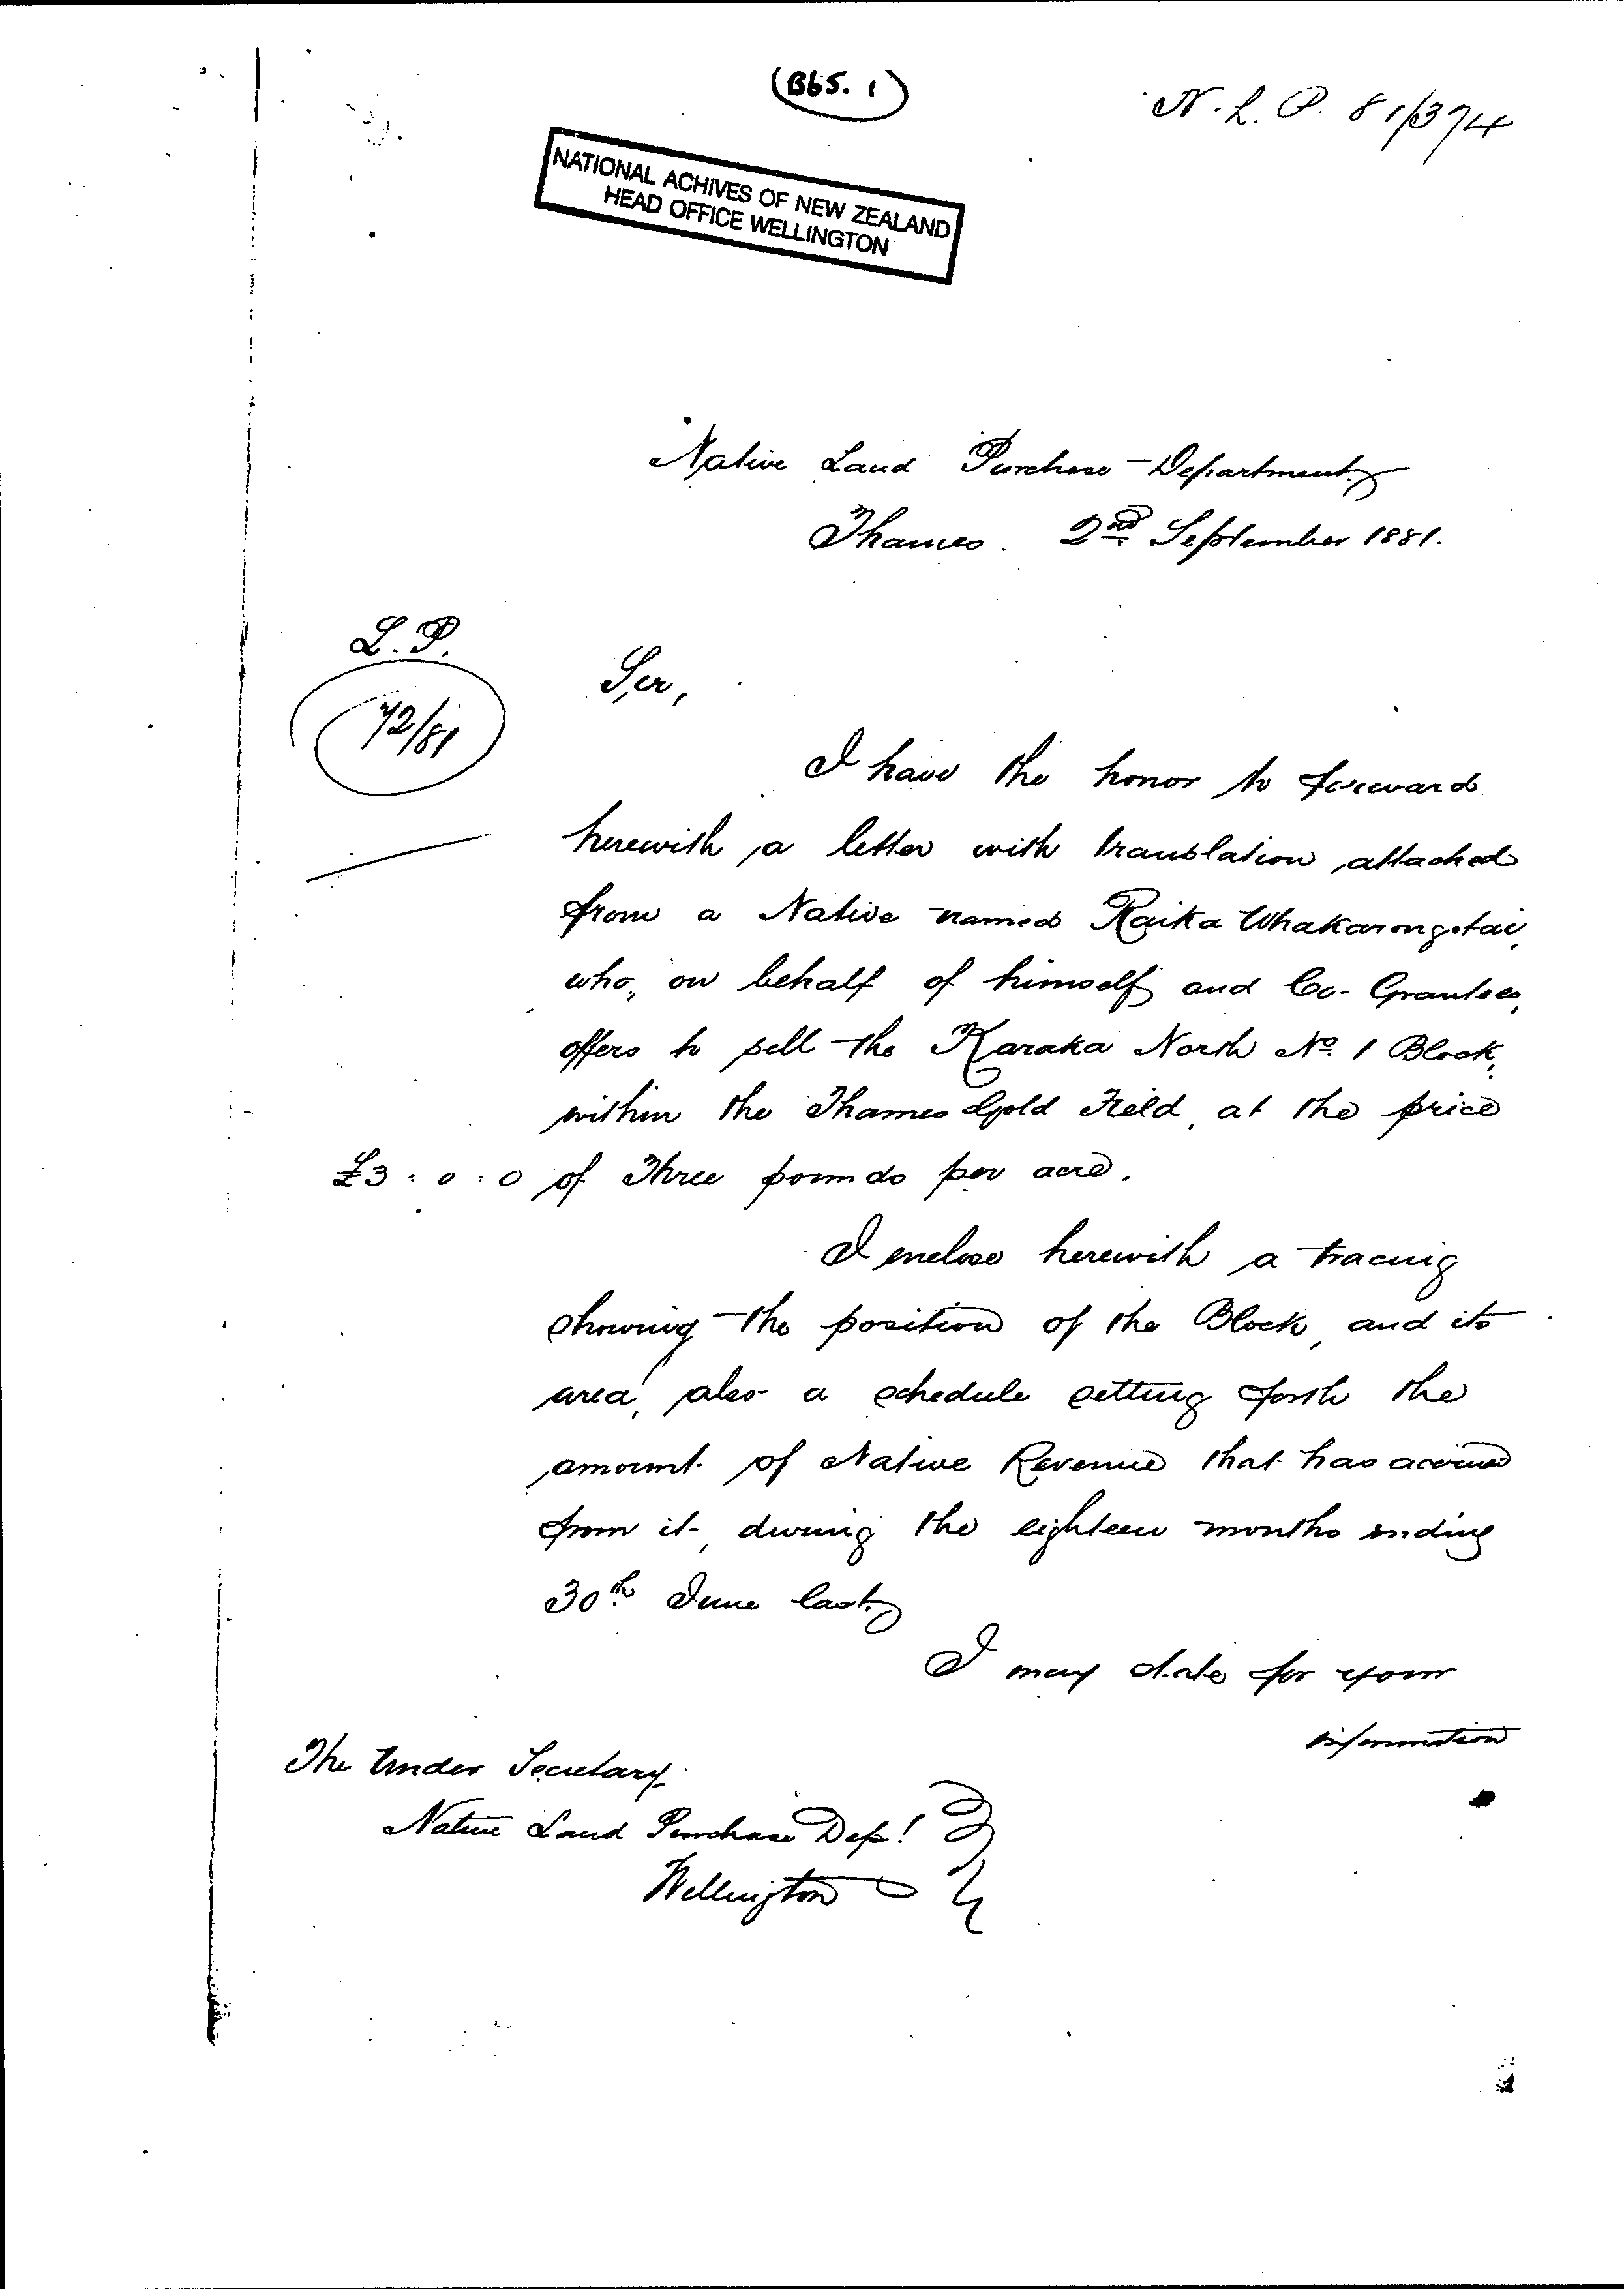 (B65. 1)
N. L. P. 81/374
NATIONAL ACHIVES OF NEW ZEALAND
HEAD OFFICE WELLINGTON
Native Land Purchase Department
Thames. 2nd September 1881.
L. P.
72/81
Sir,
I have the honor to forward
herewith a letter with translation attached
from a Native named Raika Whakarongotai,
who, on behalf of himself and Co-Grantees,
offers to sell the Karaka North No. 1 Block,
within the Thames Gold Field, at the price
£3 : 0 : 0 of Three pounds per acre.
I enclose herewith a tracing
showing the position of the Block, and its
area, also a schedule setting forth the
amount of Native Revenue that has accrued
from it, during the eighteen months ending
30th June last.
I may state for your
information
The Under Secretary
Native Land Purchase Dept
Wellington